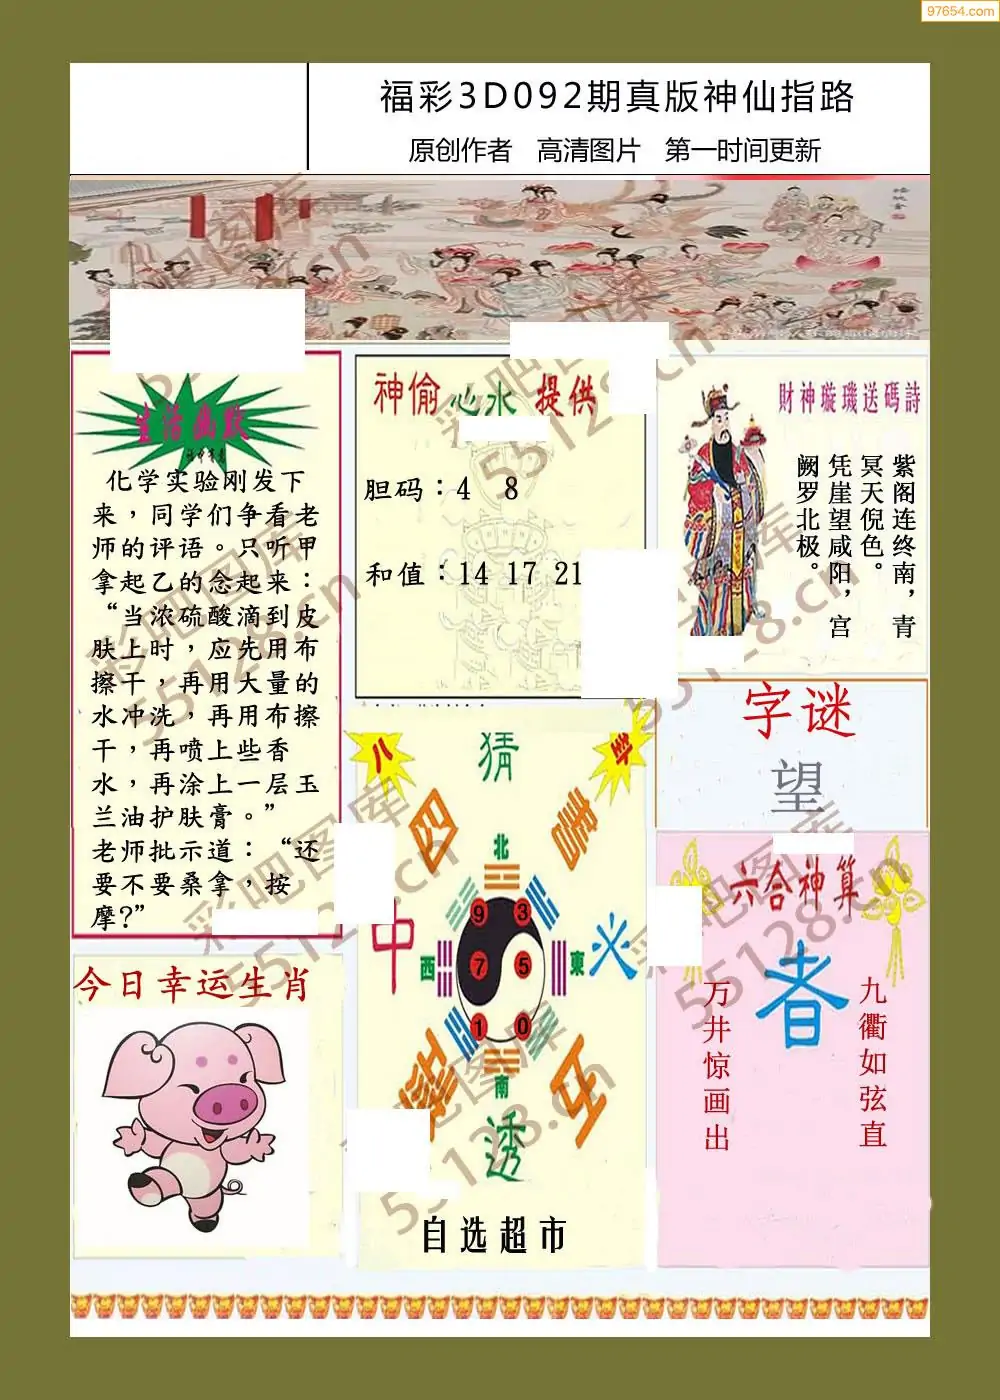 97654.com
福彩3D092期真版神仙指路
原创作者 高清图片 第一时间更新
生活幽默
化学实验刚发下
来，同学们争看老
师的评语。只听甲
拿起乙的念起来：
“当浓硫酸滴到皮
肤上时，应先用布
擦干，再用大量的
水冲洗，再用布擦
干，再喷上些香
水，再涂上一层玉
兰油护肤膏。”
老师批示道：“还
要不要桑拿，按
摩?”
今日幸运生肖
神偷心水提供
胆码：4 8
和值：14 17 21
八
卦
猜
四
书
北
9
3
中
西
7
5
東
火
1
0
南
透
自选超市
財神璇璣送碼詩
紫阁连终南，青
冥天倪色。
凭崖望咸阳，宫
阙罗北极。
字谜
望
六合神算
九衢如弦直
者
万井惊画出
彩吧图库
55128.cn
彩吧图库
55128.cn
彩吧图库
55128.cn
彩吧图库
55128.cn